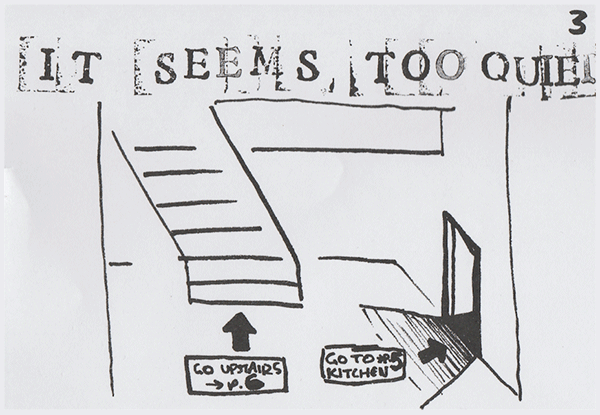 3
IT SEEMS TOO QUIET
GO UPSTAIRS
→ P.6
GO TO
KITCHEN